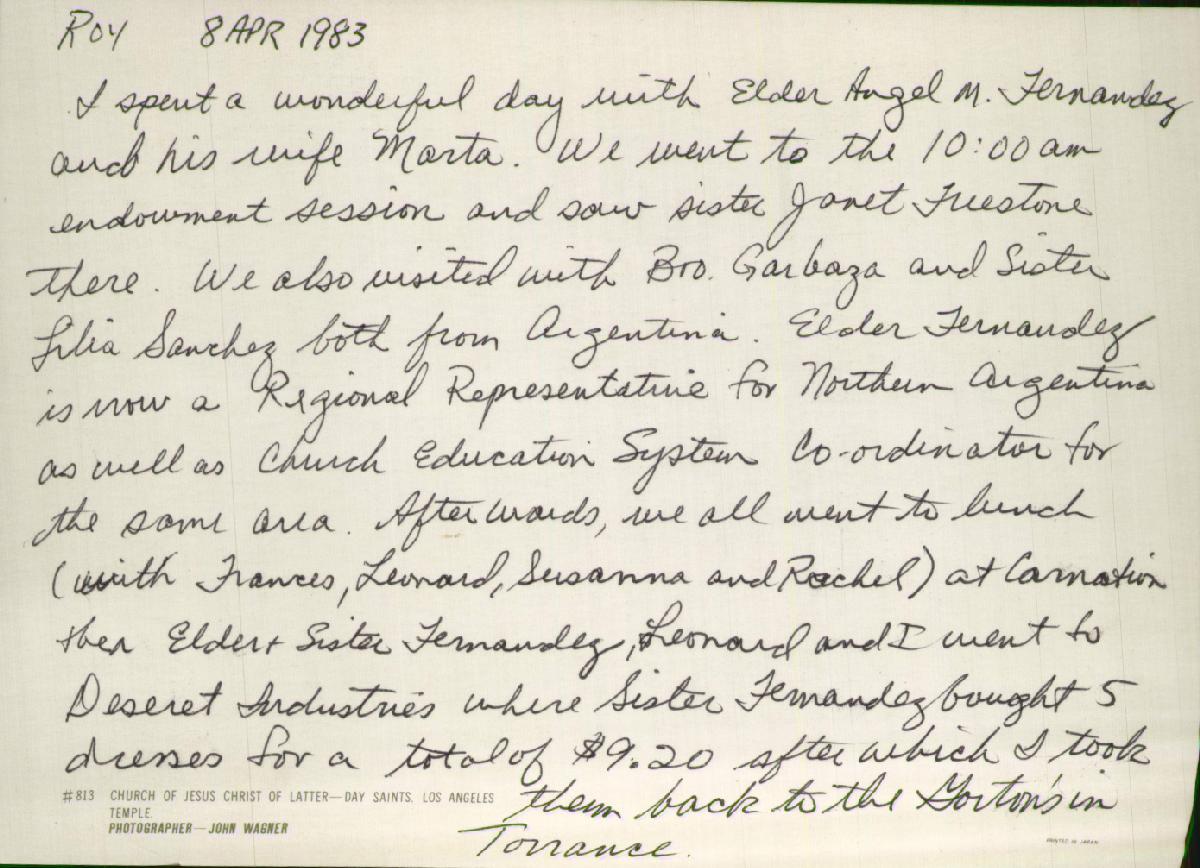 Roy 8 APR 1983
I spent a wonderful day with Elder Angel M. Fernandez
and his wife Marta. We went to the 10:00 am
endowment session and saw sister Janet Freestone
there. We also visited with Bro. Garbaza and Sister
Lilia Sanchez both from Argentina. Elder Fernandez
is now a Regional Representative for Northern Argentina
as well as Church Education System Co-ordinator for
the same area. Afterwards, we all went to lunch
(with Frances, Leonard, Susanna and Rachel) at Carnation
then Elder + Sister Fernandez, Leonard and I went to
Deseret Industries where Sister Fernandez bought 5
dresses for a total of $9.20 after which I took
them back to the Gorton's in
Torrance.
#813 CHURCH OF JESUS CHRIST OF LATTER—DAY SAINTS, LOS ANGELES
TEMPLE.
PHOTOGRAPHER—JOHN WAGNER
PRINTED IN JAPAN